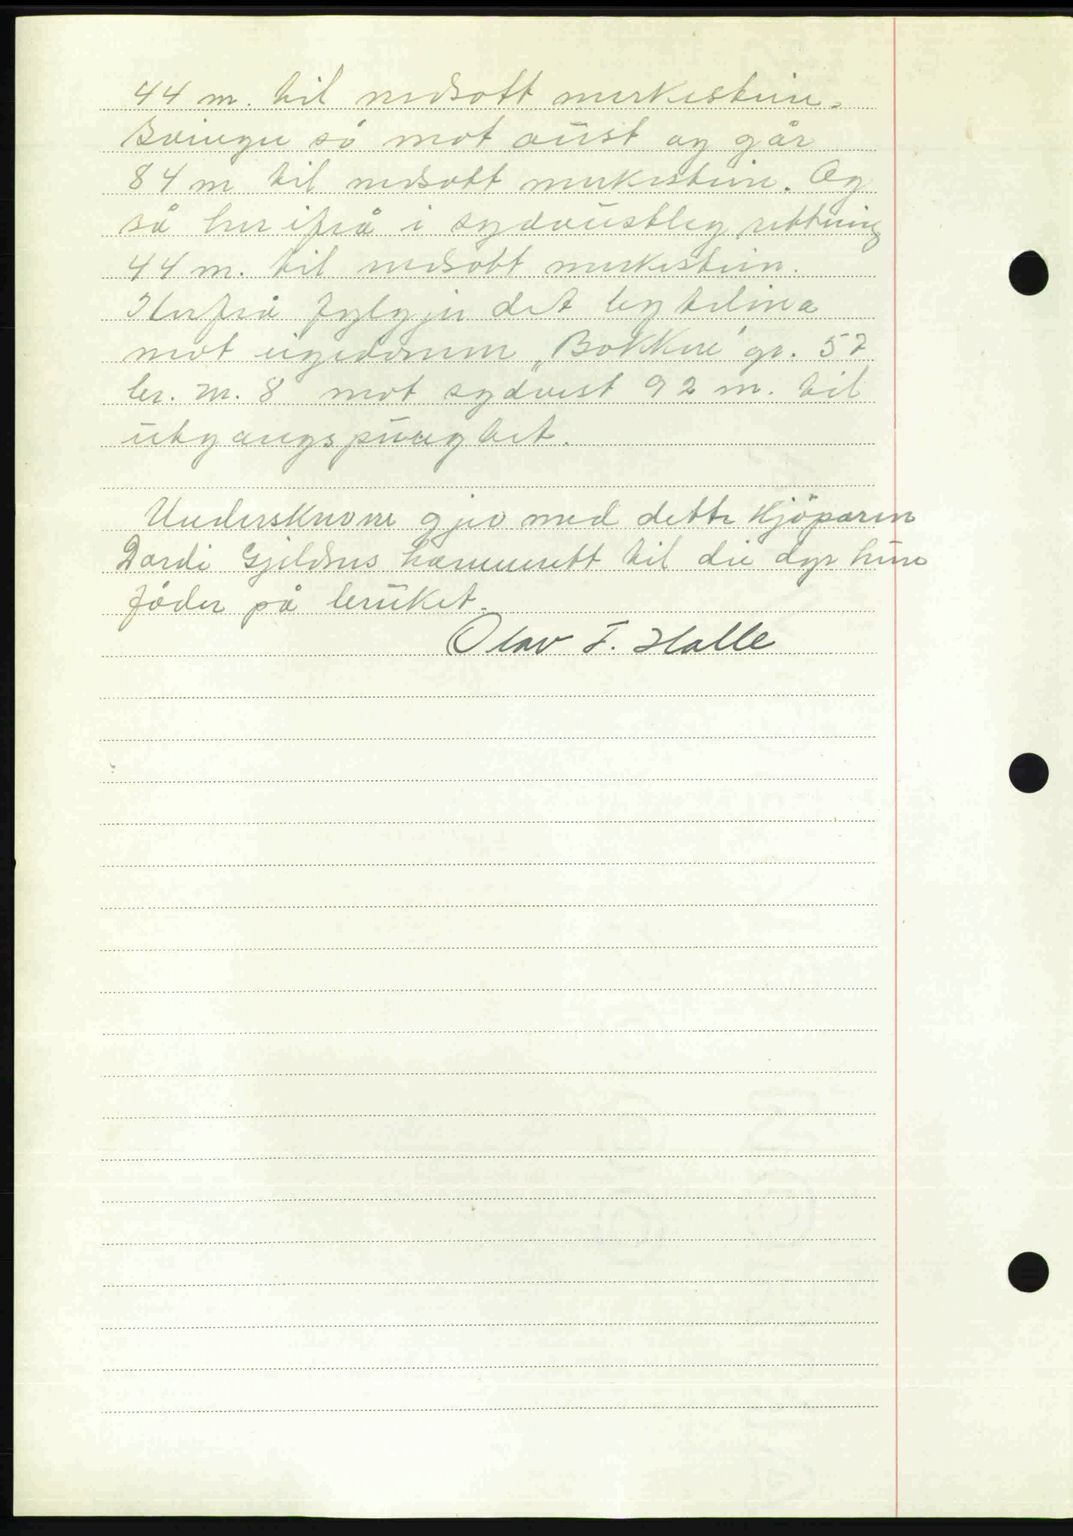 44 m. til nedsott merkestein.
Svinger så mot aust og går
84 m til nedsott merkestein. Og
så her ifrå i sydaustleg rettning
44 m. til nedsott merkestein.
Herfrå fylgjer det bytelina
mot eigedomen „Bakken" gr. 57
br. nr. 8 mot sydvest 92 m. til
utgangspunghtet.
Underskrivne gjev med dette kjöparen
Dordi Gjeldnes hamnerett til die dyr hun
föder på bruket.
Olav F. Halle